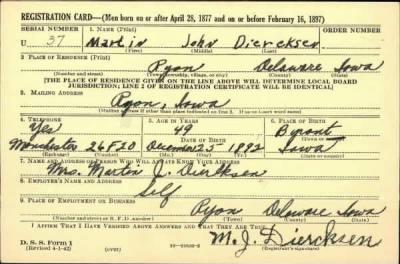 REGISTRATION CARD—(Men born on or after April 28, 1877 and on or before February 16, 1897)
SERIAL NUMBER 1. NAME (Print) ORDER NUMBER
U 37 Martin John Diercksen
(First) (Middle) (Last)
2. PLACE OF RESIDENCE (Print)
Ryan Delaware Iowa
(Number and street) (Town, township, village, or city) (County) (State)
[THE PLACE OF RESIDENCE GIVEN ON THE LINE ABOVE WILL DETERMINE LOCAL BOARD
JURISDICTION; LINE 2 OF REGISTRATION CERTIFICATE WILL BE IDENTICAL]
3. MAILING ADDRESS
Ryan, Iowa
[Mailing address if other than place indicated on line 2. If same insert word same]
4. TELEPHONE 5. AGE IN YEARS 6. PLACE OF BIRTH
Yes 49
DATE OF BIRTH
Manchester 26F20 December 25 1892 Iowa
7. NAME AND ADDRESS OF PERSON WHO WILL ALWAYS KNOW YOUR ADDRESS
Mrs. Martin J. Diercksen
8. EMPLOYER'S NAME AND ADDRESS
Self
9. PLACE OF EMPLOYMENT OR BUSINESS
Ryan Delaware Iowa
(Number and street or R. F. D. number) (Town) (County) (State)
I AFFIRM THAT I HAVE VERIFIED ABOVE ANSWERS AND THAT THEY ARE TRUE.
D. S. S. Form 1
(Revised 4-1-42) (over)
M. J. Diercksen